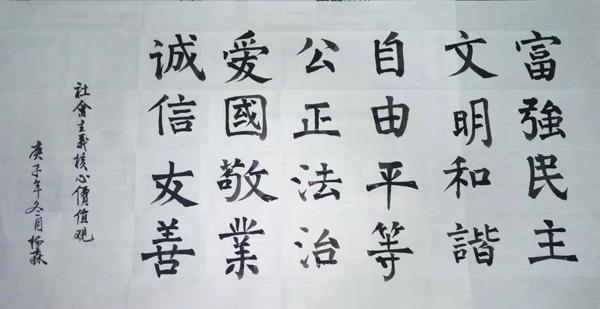 富強民主
文明和諧
自由平等
公正法治
愛國敬業
诚信友善
社會主義核心價值观
庚子年冬月楊森